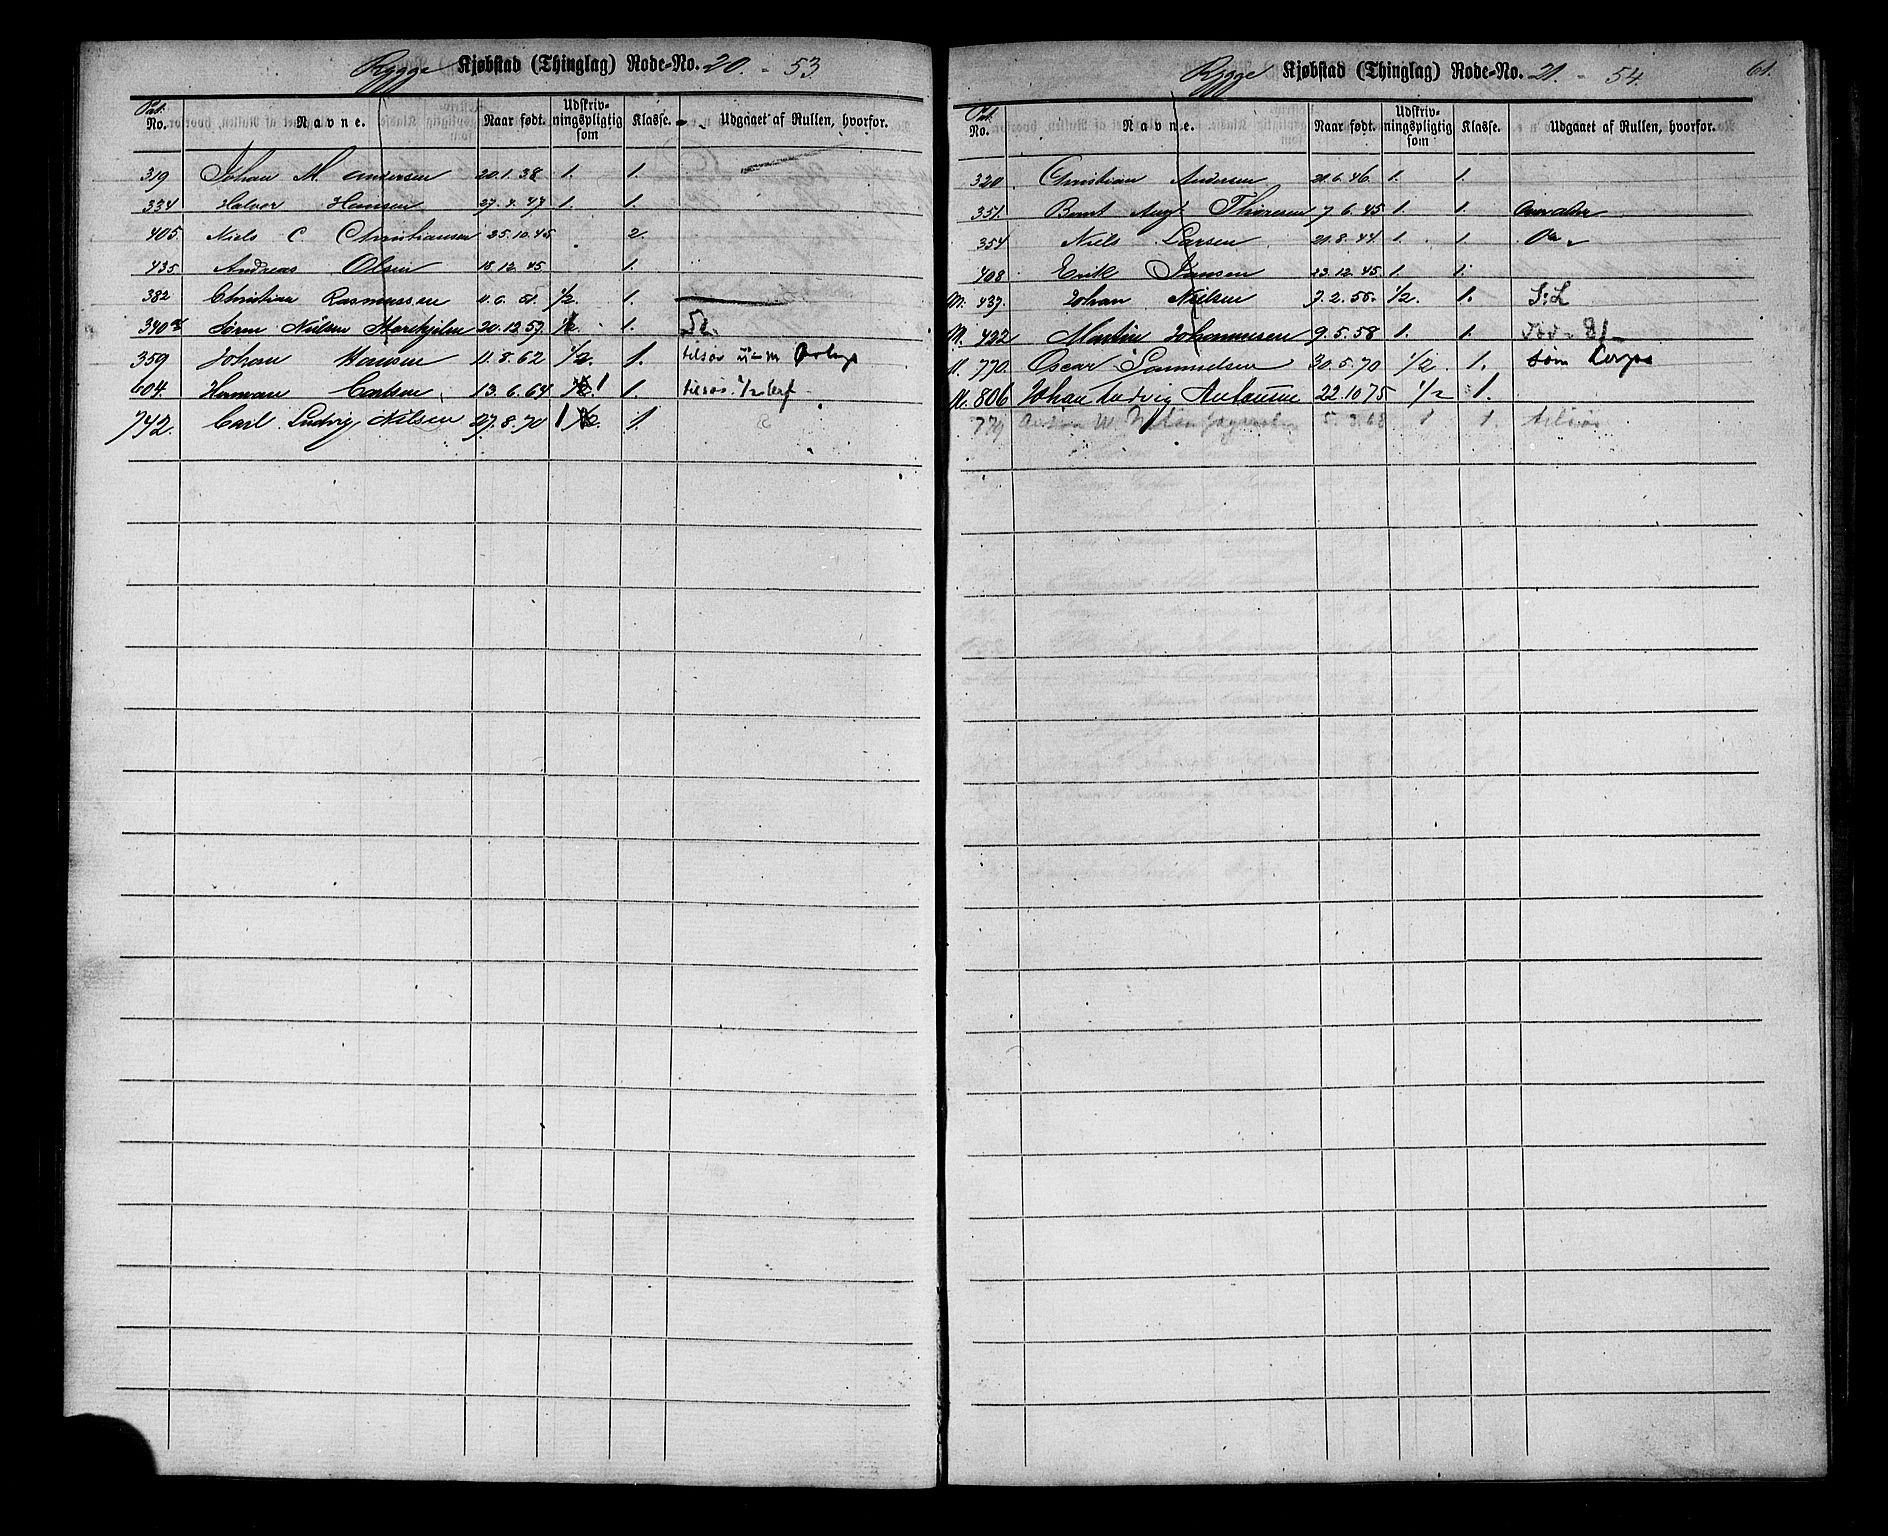 Rygge Kjøbstad (Thinglag) Rode-No. 20. - 53
Pat. No. Navne. Naar født. Udskrivningspligtig som Klasse. Udgaaet af Rullen, hvorfor.
319 Johan M. Andersen 20.1.38 1. 1.
334 Halvor Hansen 27.4.47 1. 1.
405 Niels C. Christiansen 25.10.45 2.
435 Andreas Olsen 18.12.45 1.
382 Christian Rasmussen 11.6.51. 1/2. 1.
340 Søren Nielsen 20.12.57. 1/2. 1.
359 Johan Hansen 11.8.62 1/2. 1. tilsøs
604. Herman Carlsen 13.6.64 1/2. 1 1. tilsøs.
742. Carl Ludvig Nilsen 27.8.70 1 1/2. 1.
Rygge Kjøbstad (Thinglag) Rode-No. 21. - 54. 61.
Pat. No. Navne. Naar født. Udskrivningspligtig som Klasse. Udgaaet af Rullen, hvorfor.
320. Christian Andersen 21.6.46. 1. 1.
351. Bernt Aug. Thoresen 7.6.45 1. 1.
354 Niels Larsen 21.8.44 1. 1.
408 Erik Jansen 23.12.45 1. 1.
M. 437. Johan Nielsen 7.2.55. 1/2. 1. S:L
M. 422 Martin Johannesen 9.5.58 1. 1. 81
M. 770. Oscar Samuelsen 30.5.70 1/2. 1. Søm Corps
M. 806 Johan Ludvig Antonsen 22.10 75 1/2 1.
779 5.3.68 1 1. tilsøs